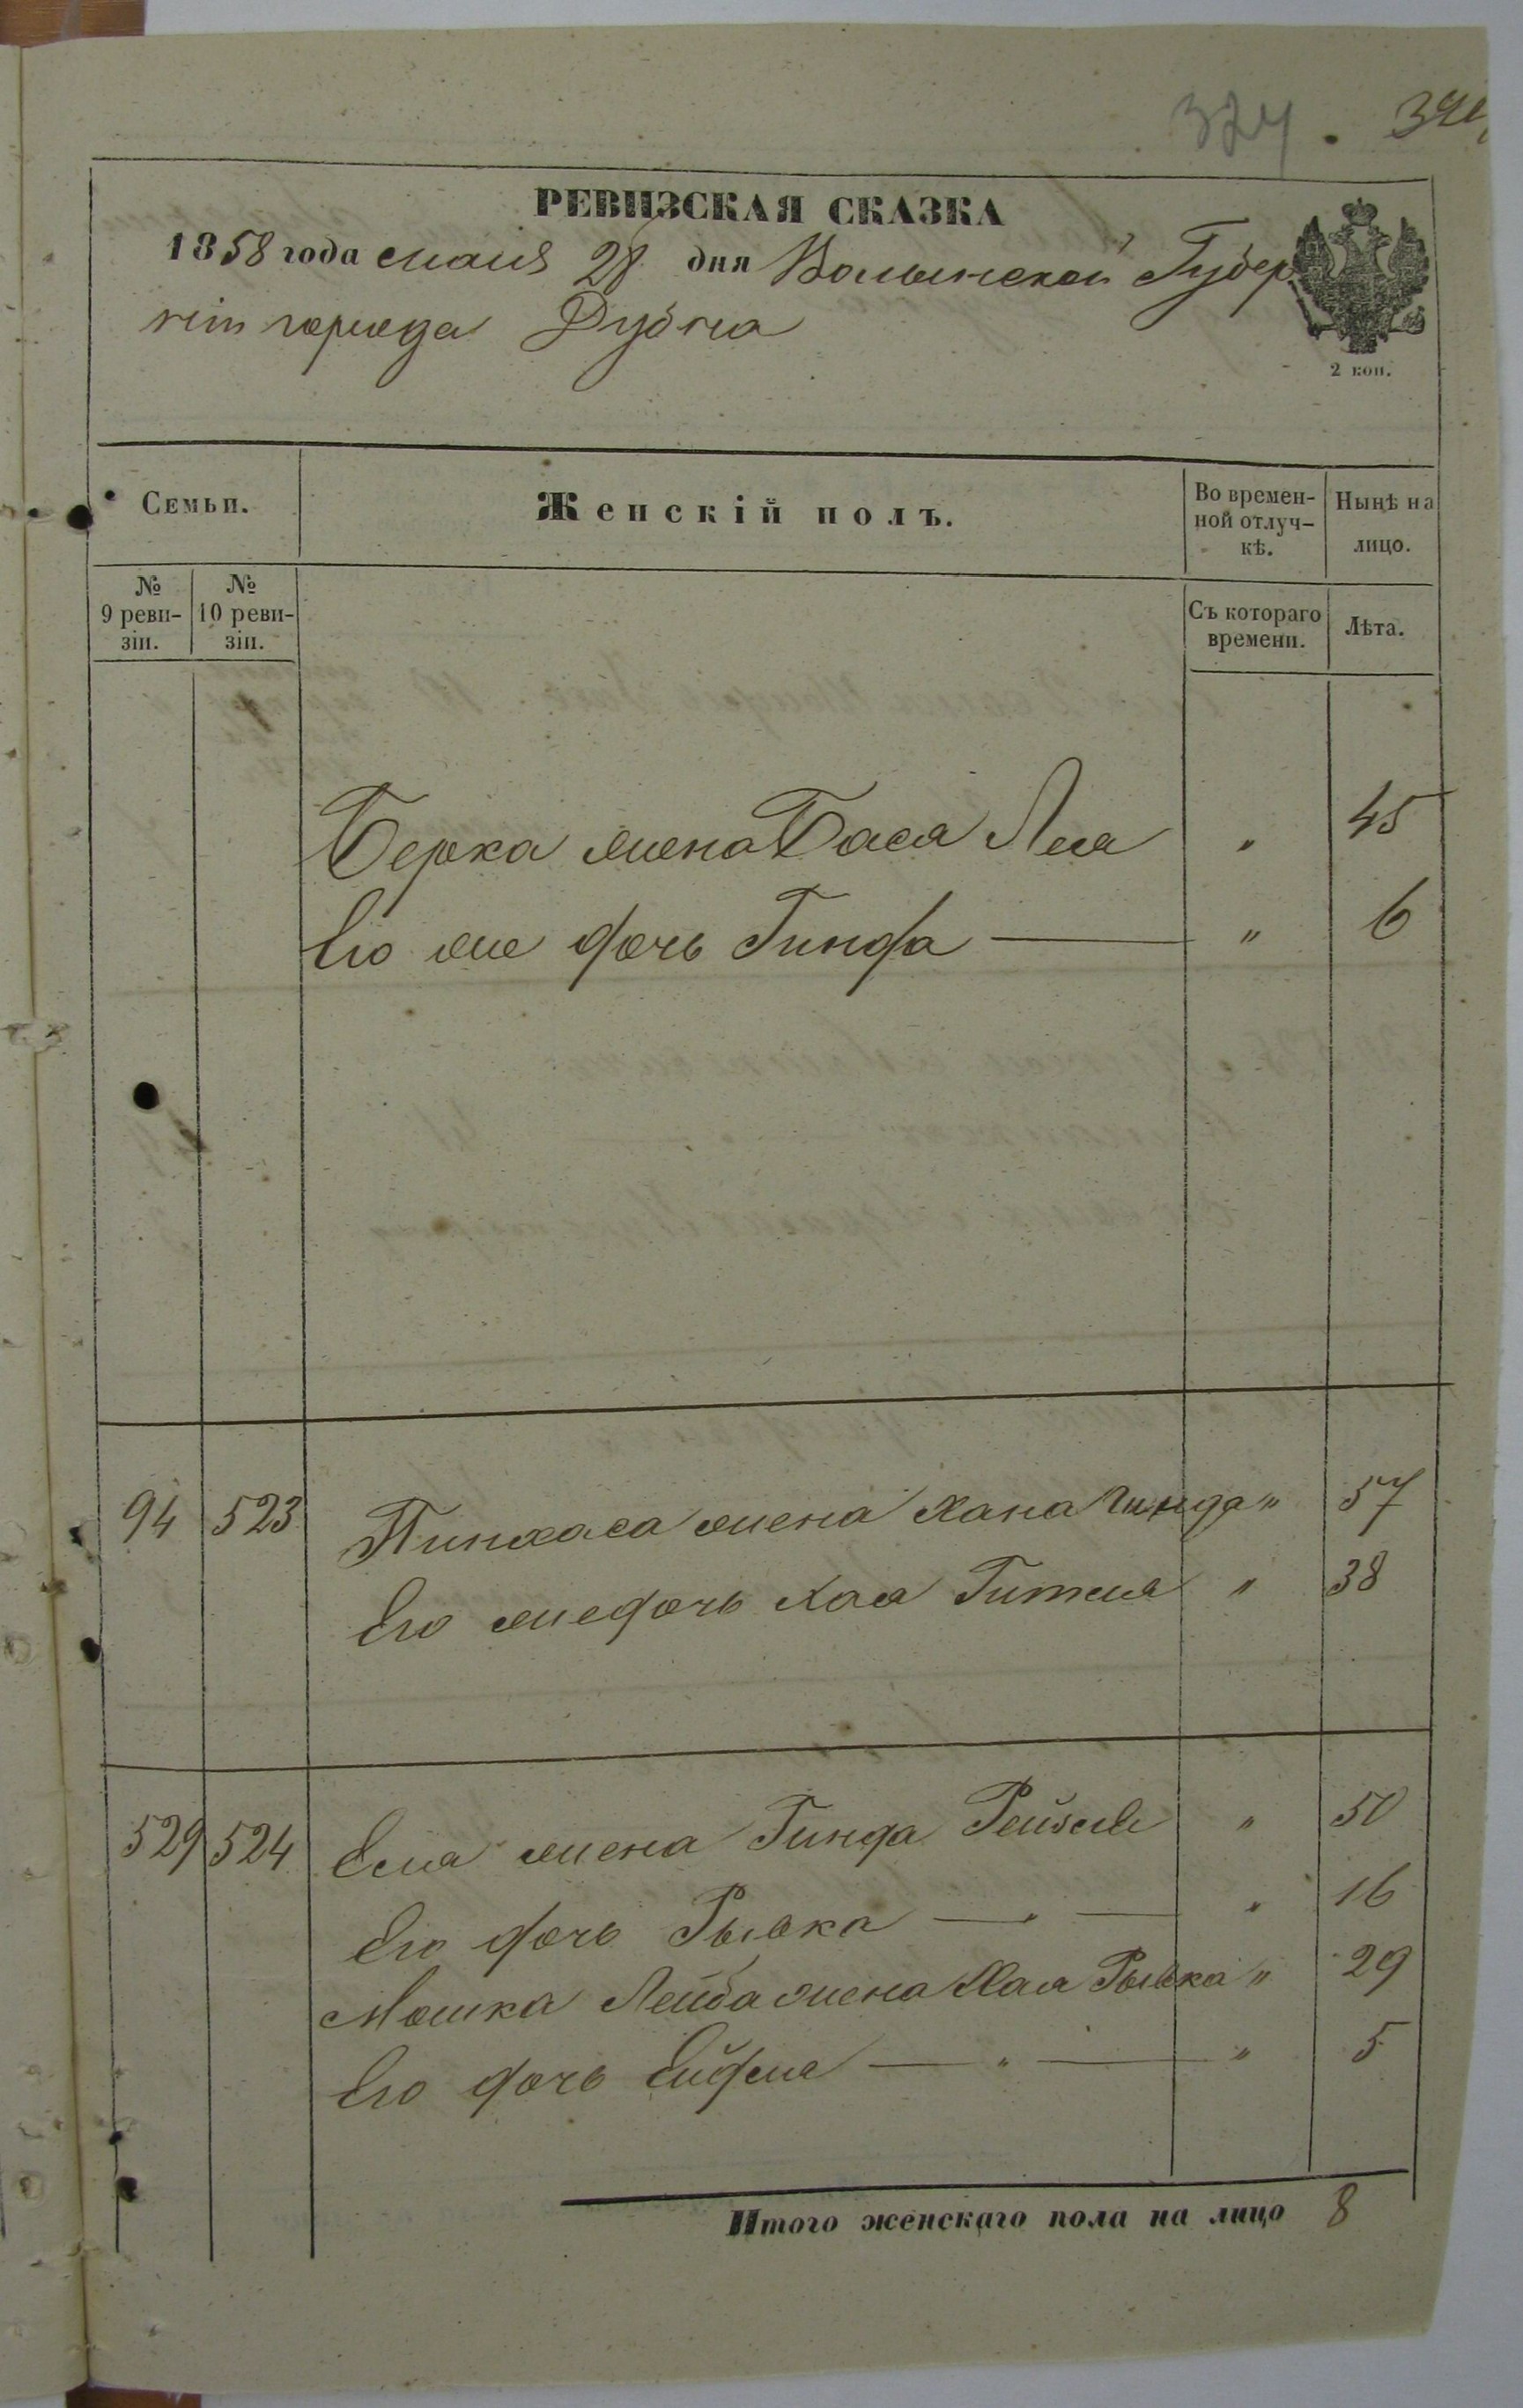 324. 324
РЕВИЗСКАЯ СКАЗКА
1858 года маія 28 дня Волынской Губер
ніи города Дубна
2 коп.
Семьи.
Женскій полъ.
Во времен-
ной отлуч-
кѣ.
Нынѣ на
лицо.
№
9 реви-
зіи.
№
10 реви-
зіи.
Съ котораго
времени.
Лѣта.
Берка жена Бася Лея " 45
Его же дочь Гинда — " 6
94 523 Пинхаса жена Хана Гинда " 57
Его же дочь Хая Гитля " 38
529 524 Еля жена Гинда Рейзля " 50
Его дочь Рывка — " — " 16
Мошка Лейба жена Хая Рывка " 29
Его дочь Ейдля — " — " 5
Итого женскаго пола на лицо 8